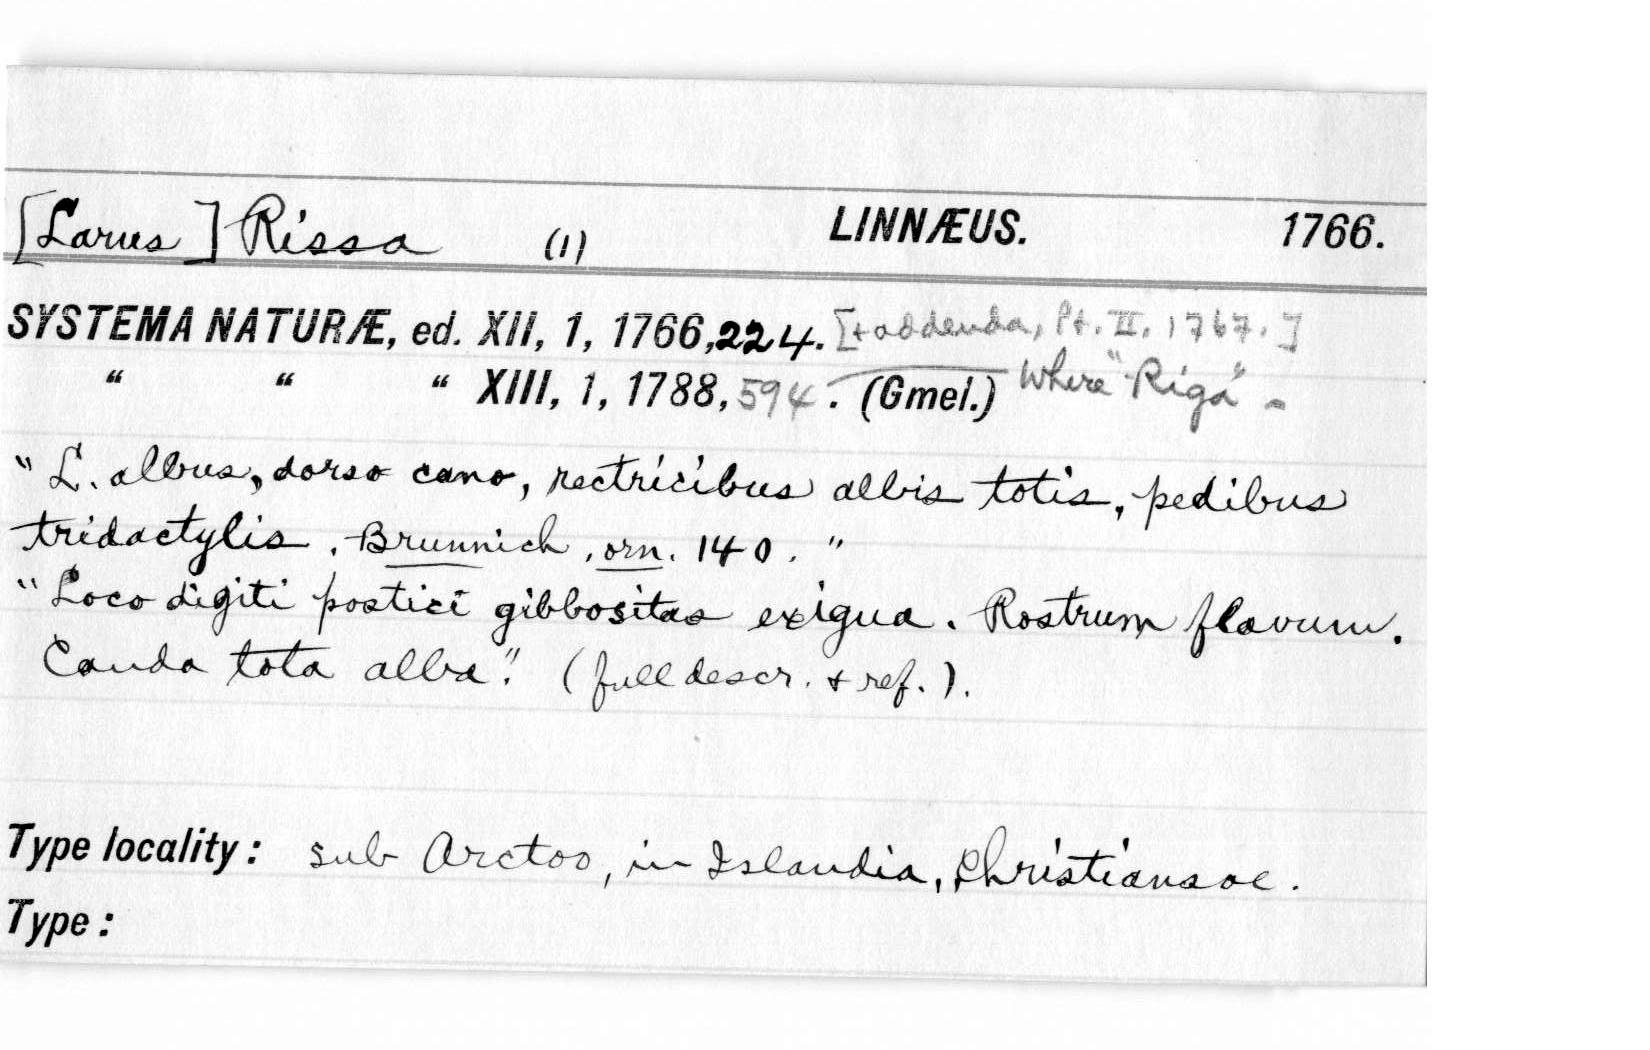 [Larus] Rissa (1) LINNÆUS. 1766.
SYSTEMA NATURÆ, ed. XII, 1, 1766, 224. [+ addenda, Pt. II, 1767.]
" " " XIII, 1, 1788, 594. (Gmel.) Where "Riga" -
" L. albus, dorso cano, rectricibus albis totis, pedibus
tridactylis. Brunnich, orn. 140. "
" Loco digiti postici gibbositas exigua. Rostrum flavum.
Cauda tota alba." (full descr. & ref.).
Type locality: sub Arcto, in Islandia, Christiansoe.
Type: